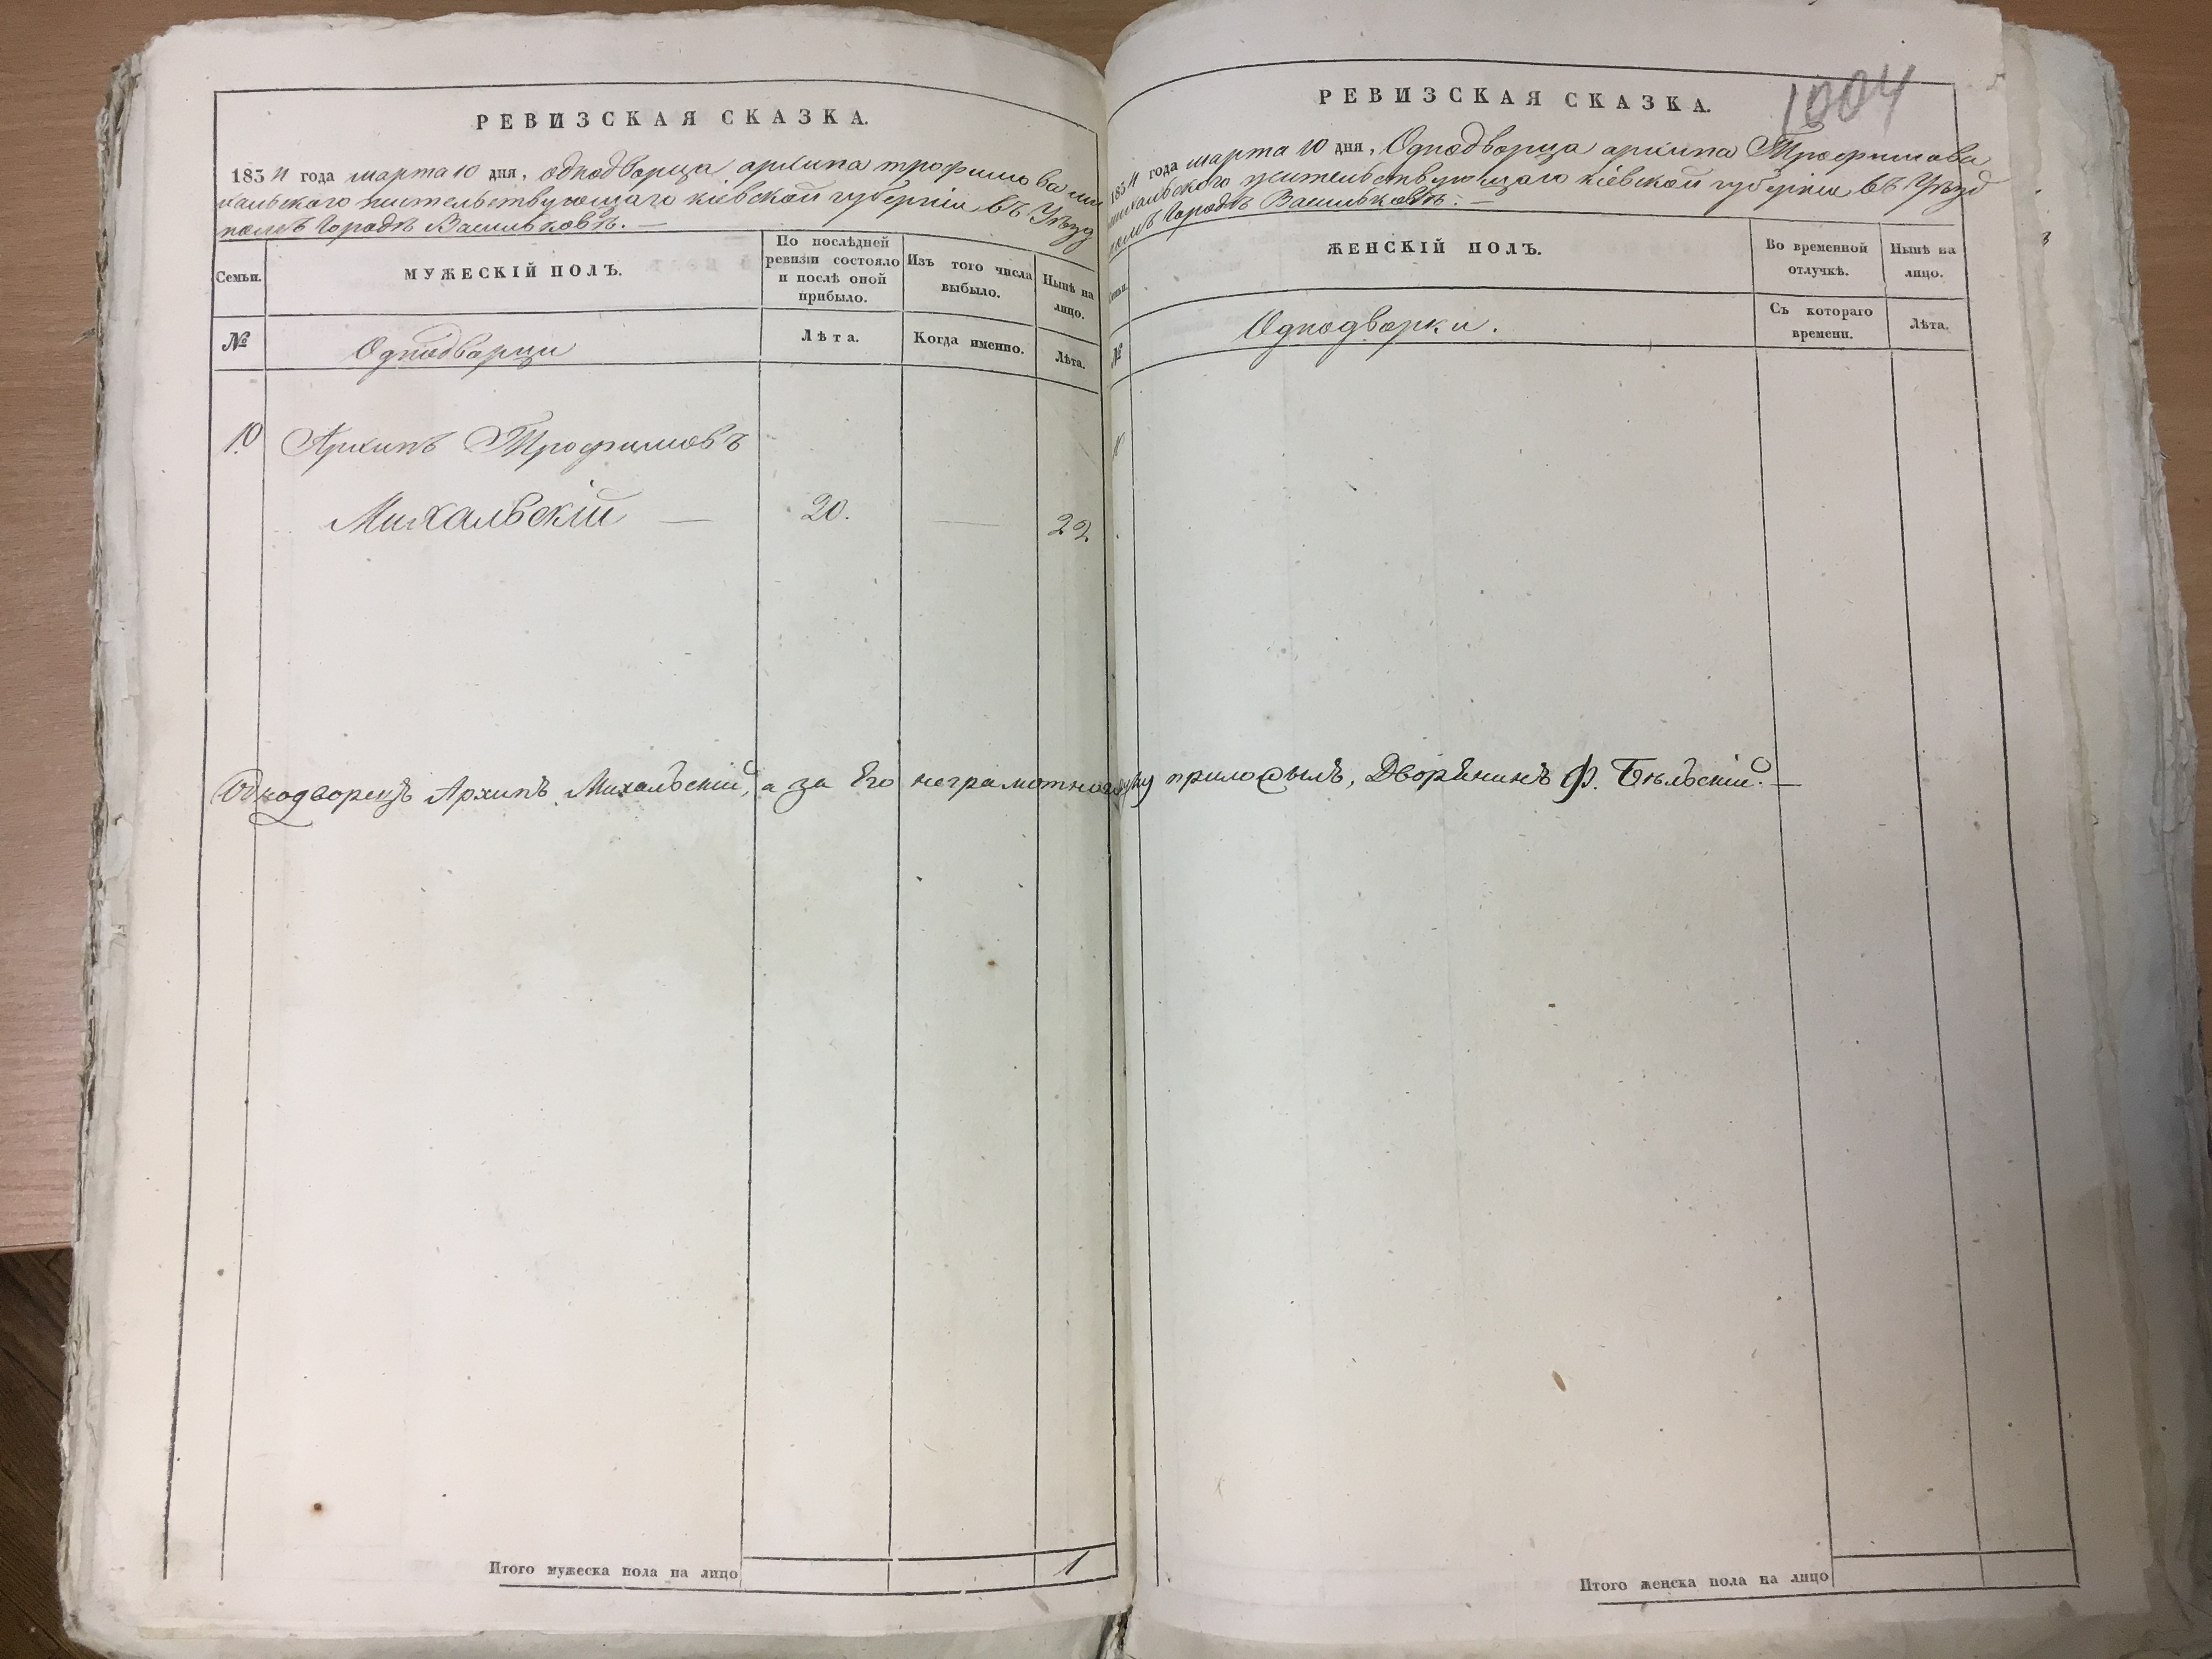 РЕВИЗСКАЯ СКАЗКА.
1834 года марта 10 дня, однодворца архипа трофимова ми
хальского жительствующаго кіевской губерніи въ Уѣзд
номъ городѣ Васильковѣ. —
Семьи.
МУЖЕСКІЙ ПОЛЪ.
По послѣдней ревизіи состояло и послѣ оной прибыло.
Изъ того числа выбыло.
Нынѣ на лицо.
№
Однодворцы
Лѣта.
Когда именно.
Лѣта.
10
Архипъ Трофимовъ
Михальскій — 20. — 22.
Однодворецъ Архипъ Михальскій, а за Его неграмотного руку приложылъ, Дворѣнинъ Ф. Бѣльскій. —
Итого мужеска пола на лицо 1
1004
РЕВИЗСКАЯ СКАЗКА.
1834 года марта 10 дня, Однодворца архипа Трофимова
михальского жительствующаго кіевской губерніи въ Уѣзд
номъ городѣ Васильковѣ. —
Семьи.
ЖЕНСКІЙ ПОЛЪ.
Во временной отлучкѣ.
Нынѣ на лицо.
№
Однодворки.
Съ котораго времени.
Лѣта.
Итого женска пола на лицо